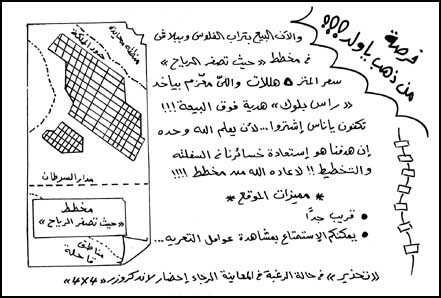 فرصة
من ذهب ياولد !!!
والآن البيع بتراب الفلوس وببلاش
في مخطط «حيث تصفر الرياح»
سعر المتر ٥ هللات واللي مقزم بياخد
«راس بلوك» هدية فوق البيعة !!!
تكفون ياناس إشتروا... لأن يعلم الله وحده
إن هدفنا هو إستعادة خسائرنا في السفلته
والتخطيط !! لا عاده الله من مخطط !!!!
* مميزات الموقع *
• قريب جدًا
• يمكنكم الاستمتاع بمشاهدة عوامل التعريه...
«تحذير» في حالة الرغبة في المعاينة الرجاء إحضار لاندكروزر «4X4»
منطقة محايدة
حدود المملكة
مدار السرطان
مخطط
«حيث تصفر الرياح»
مناطق
قاحلة